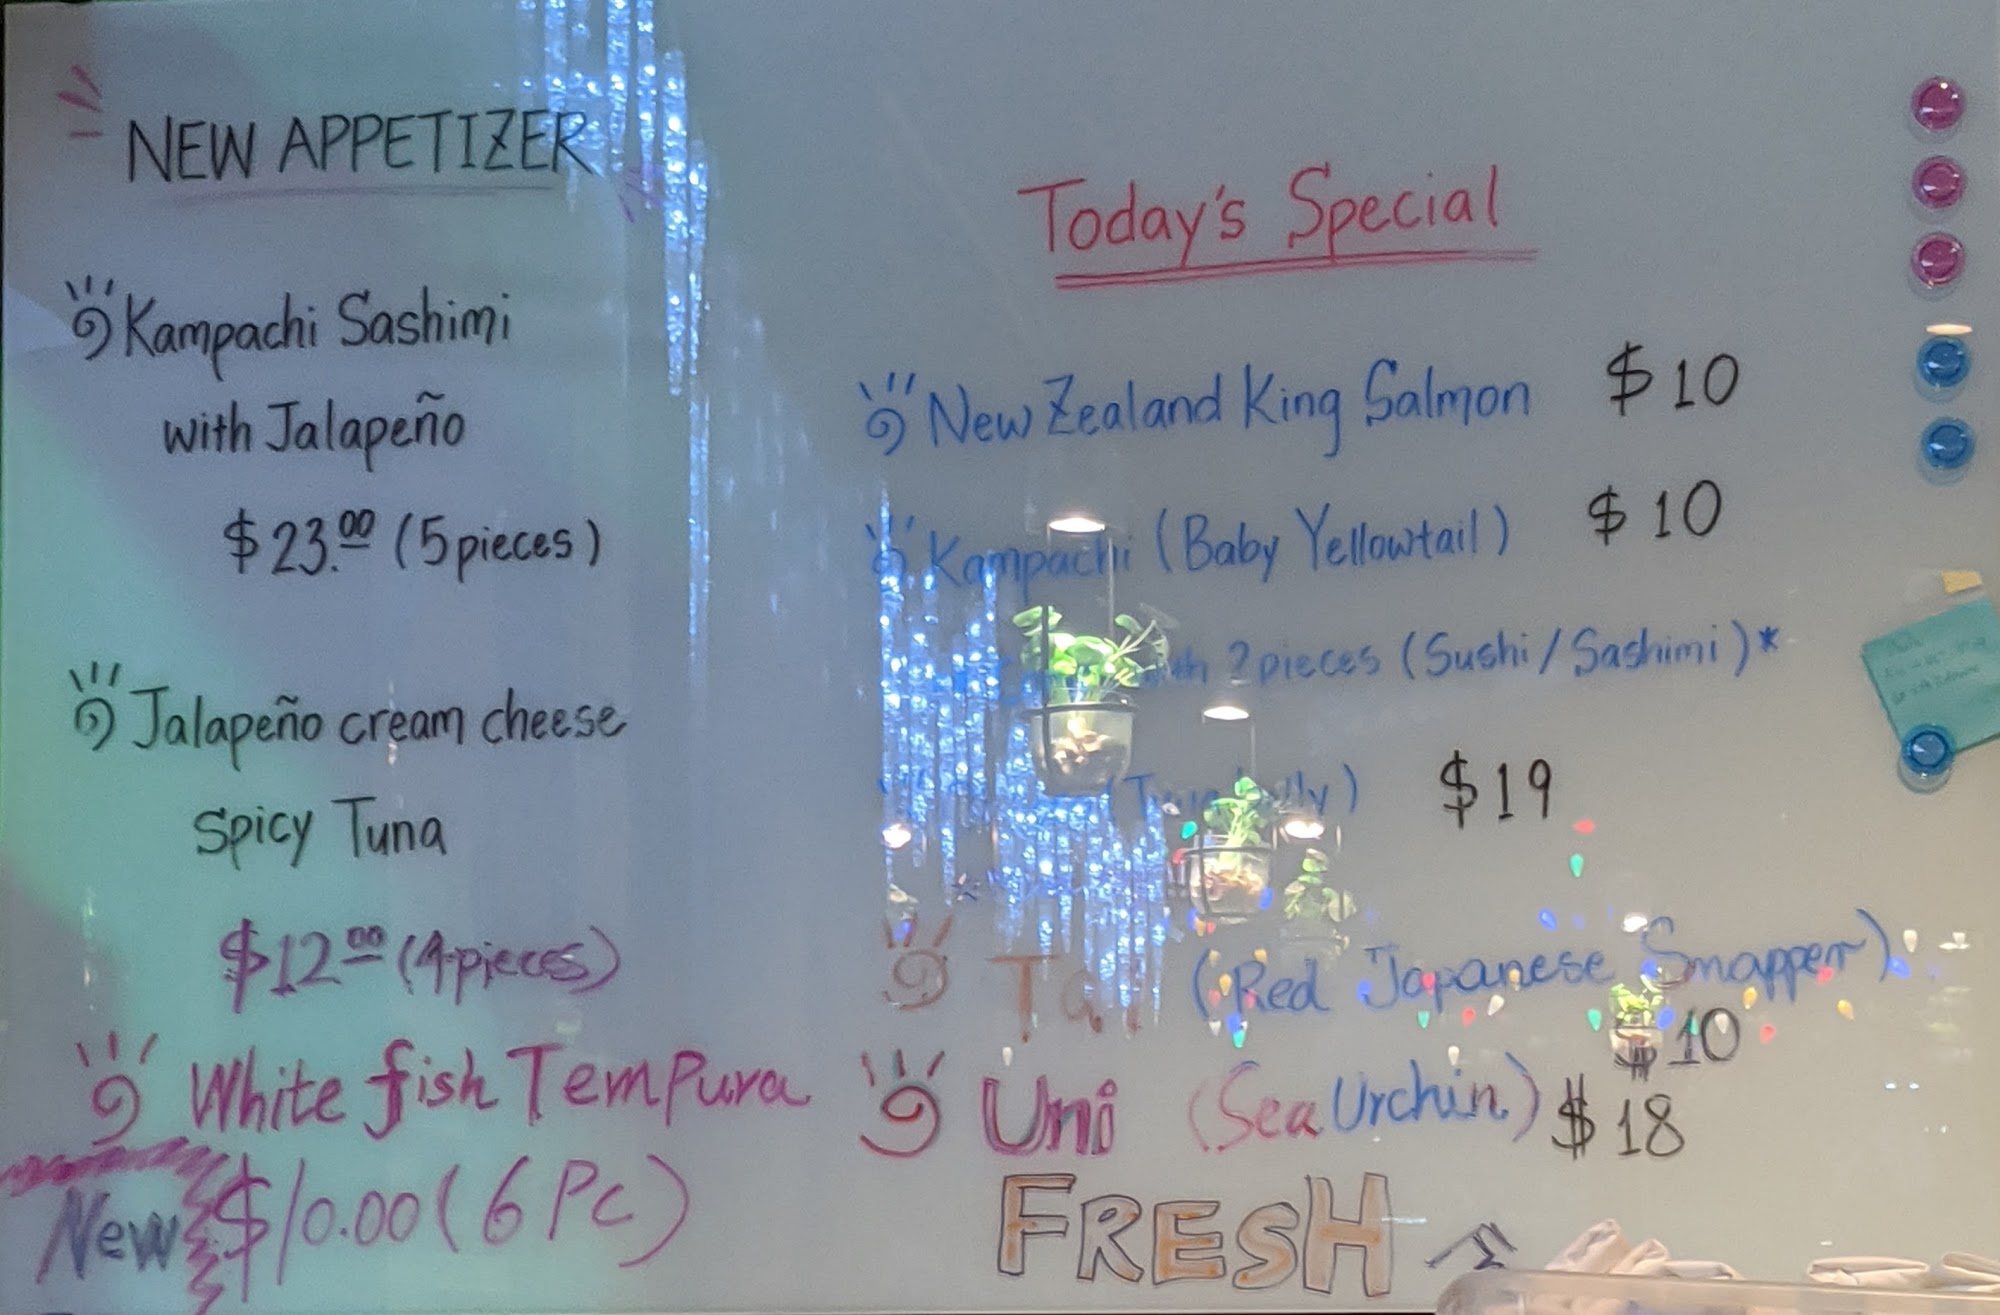 NEW APPETIZER
Kampachi Sashimi
with Jalapeño
$23.00 (5 pieces)
Jalapeño cream cheese
Spicy Tuna
$12.00 (4 pieces)
White fish Tempura
New $10.00 (6 Pc)
Today's Special
New Zealand King Salmon $10
Kampachi (Baby Yellowtail) $10
2 pieces (Sushi/Sashimi)*
$19
Tai (Red Japanese Snapper)
$10
Uni (Sea Urchin) $18
FRESH